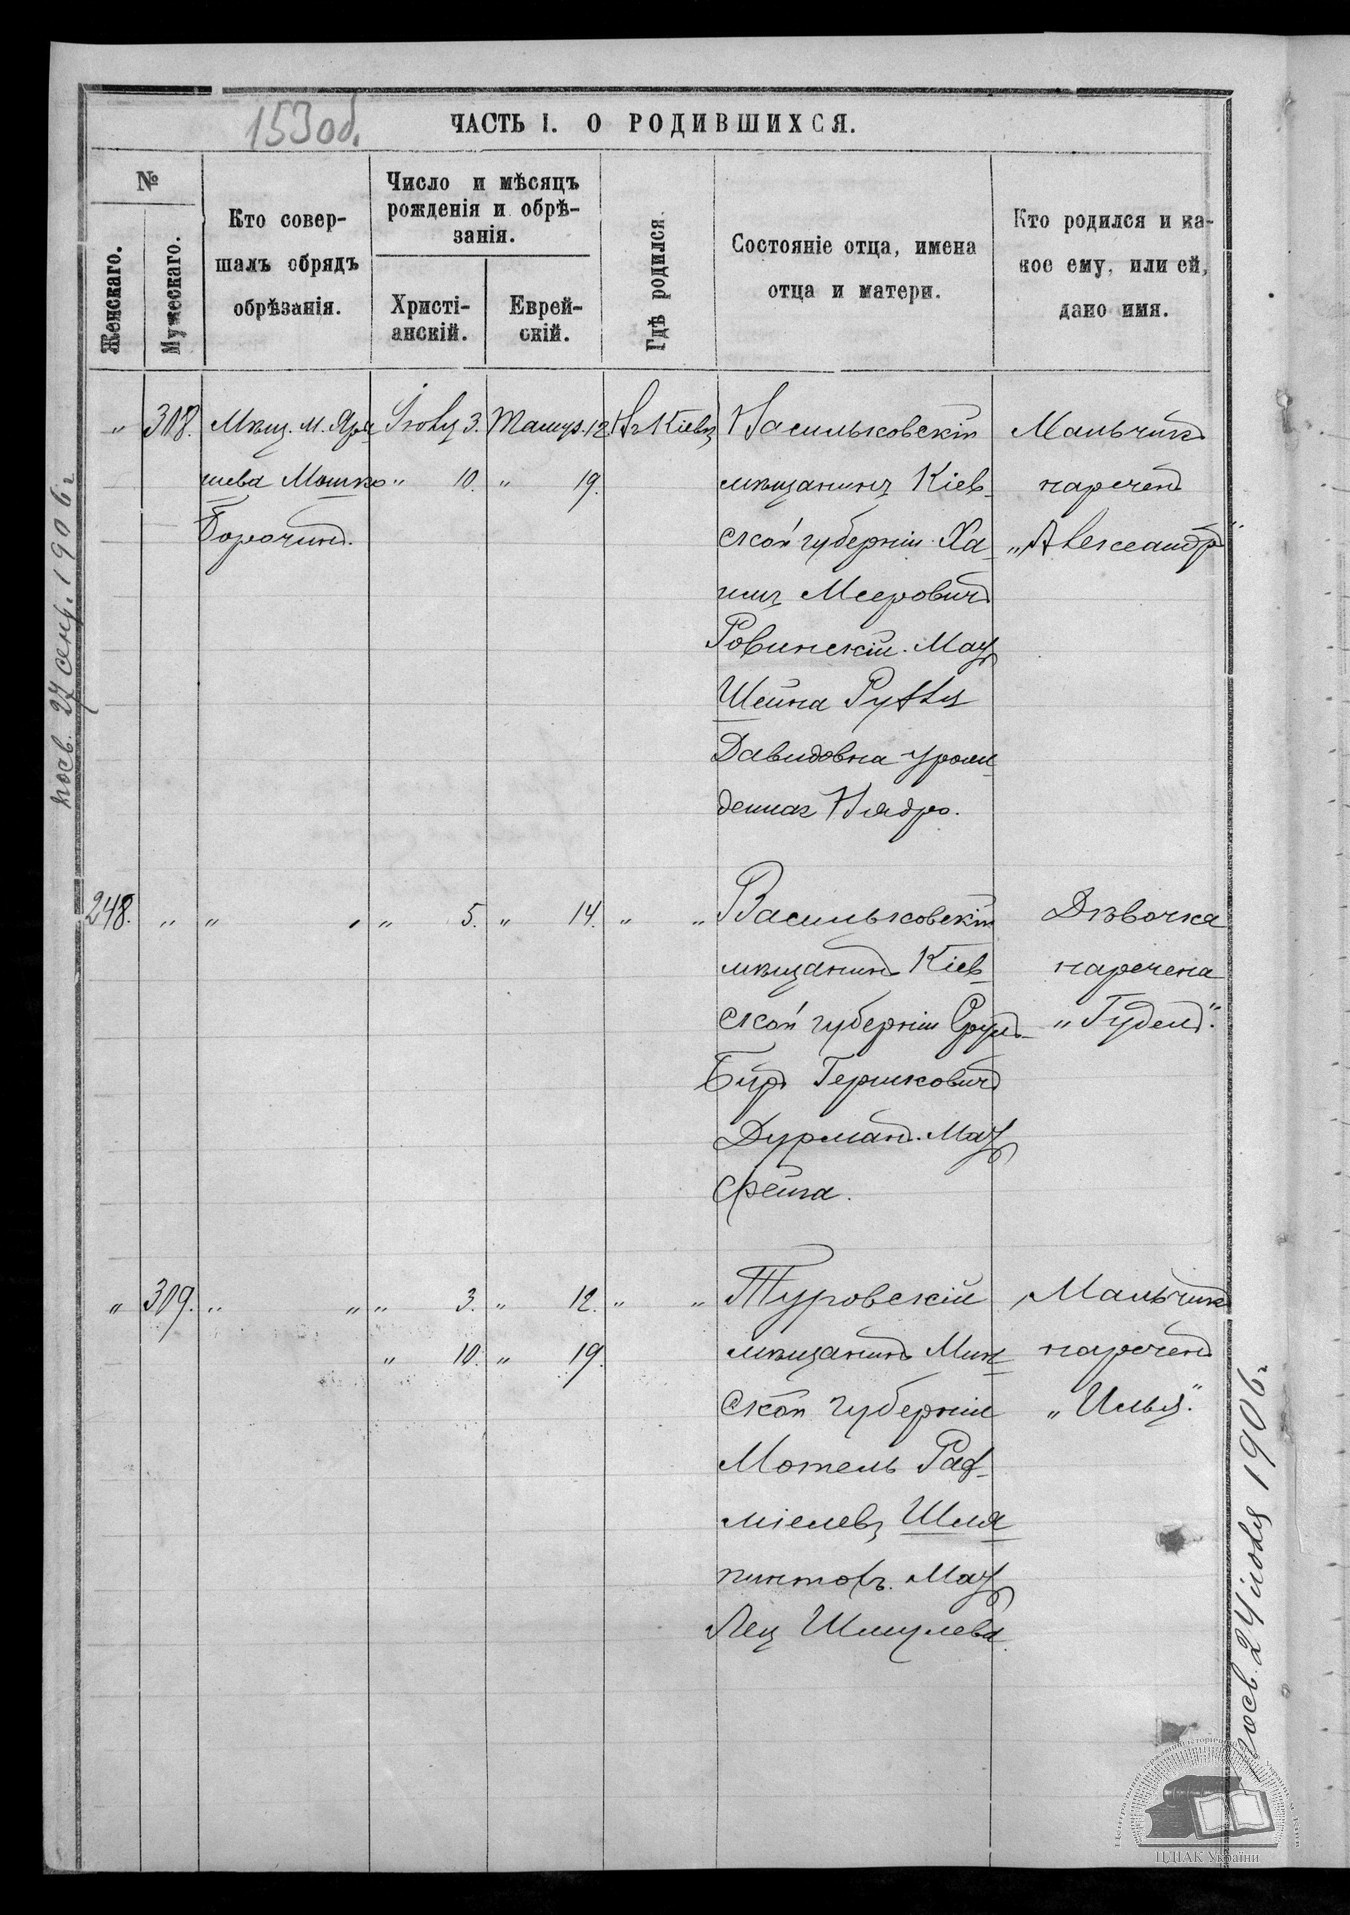 153 об.
ЧАСТЬ I. О РОДИВШИХСЯ.
№
Женскаго.
Мужескаго.
Кто совер-
шалъ обрядъ
обрѣзанія.
Число и мѣсяцъ
рожденія и обрѣ-
занія.
Христі-
анскій.
Еврей-
скій.
Гдѣ родился.
Состояніе отца, имена
отца и матери.
Кто родился и ка-
кое ему, или ей,
дано имя.
„ 308. Мѣщ. м. Яры
шева Мошко
Борочинъ.
Іюля 3. Тамуз. 12.
„ 10. „ 19.
Въ Кіевѣ
Васильковскій
мѣщанинъ Кіев-
ской губерніи Ха-
имъ Мееровичъ
Ровинскій. Мать
Шейна
Давидовна урож-
денная
Мальчикъ
нареченъ
„Александръ"
248. „ „ „ „ 5. „ 14. „ „
Васильковскій
мѣщанинъ Кіев-
ской губерніи Сруль-
Беръ Гершковичъ
Дурманъ. Мать
Фейга.
Дѣвочка
наречена
„Гудель".
„ 309. „ „ „ 3. „ 12. „ „
„ 10. „ 19.
Туровскій
мѣщанинъ Мин-
ской губерніи
Мотель
Шля
Мать
Лея Шмулева.
Мальчикъ
нареченъ
„Илья".
посв. 27 сент. 1906 г.
посв. 24 іюля 1906 г.
ЦДІАК України